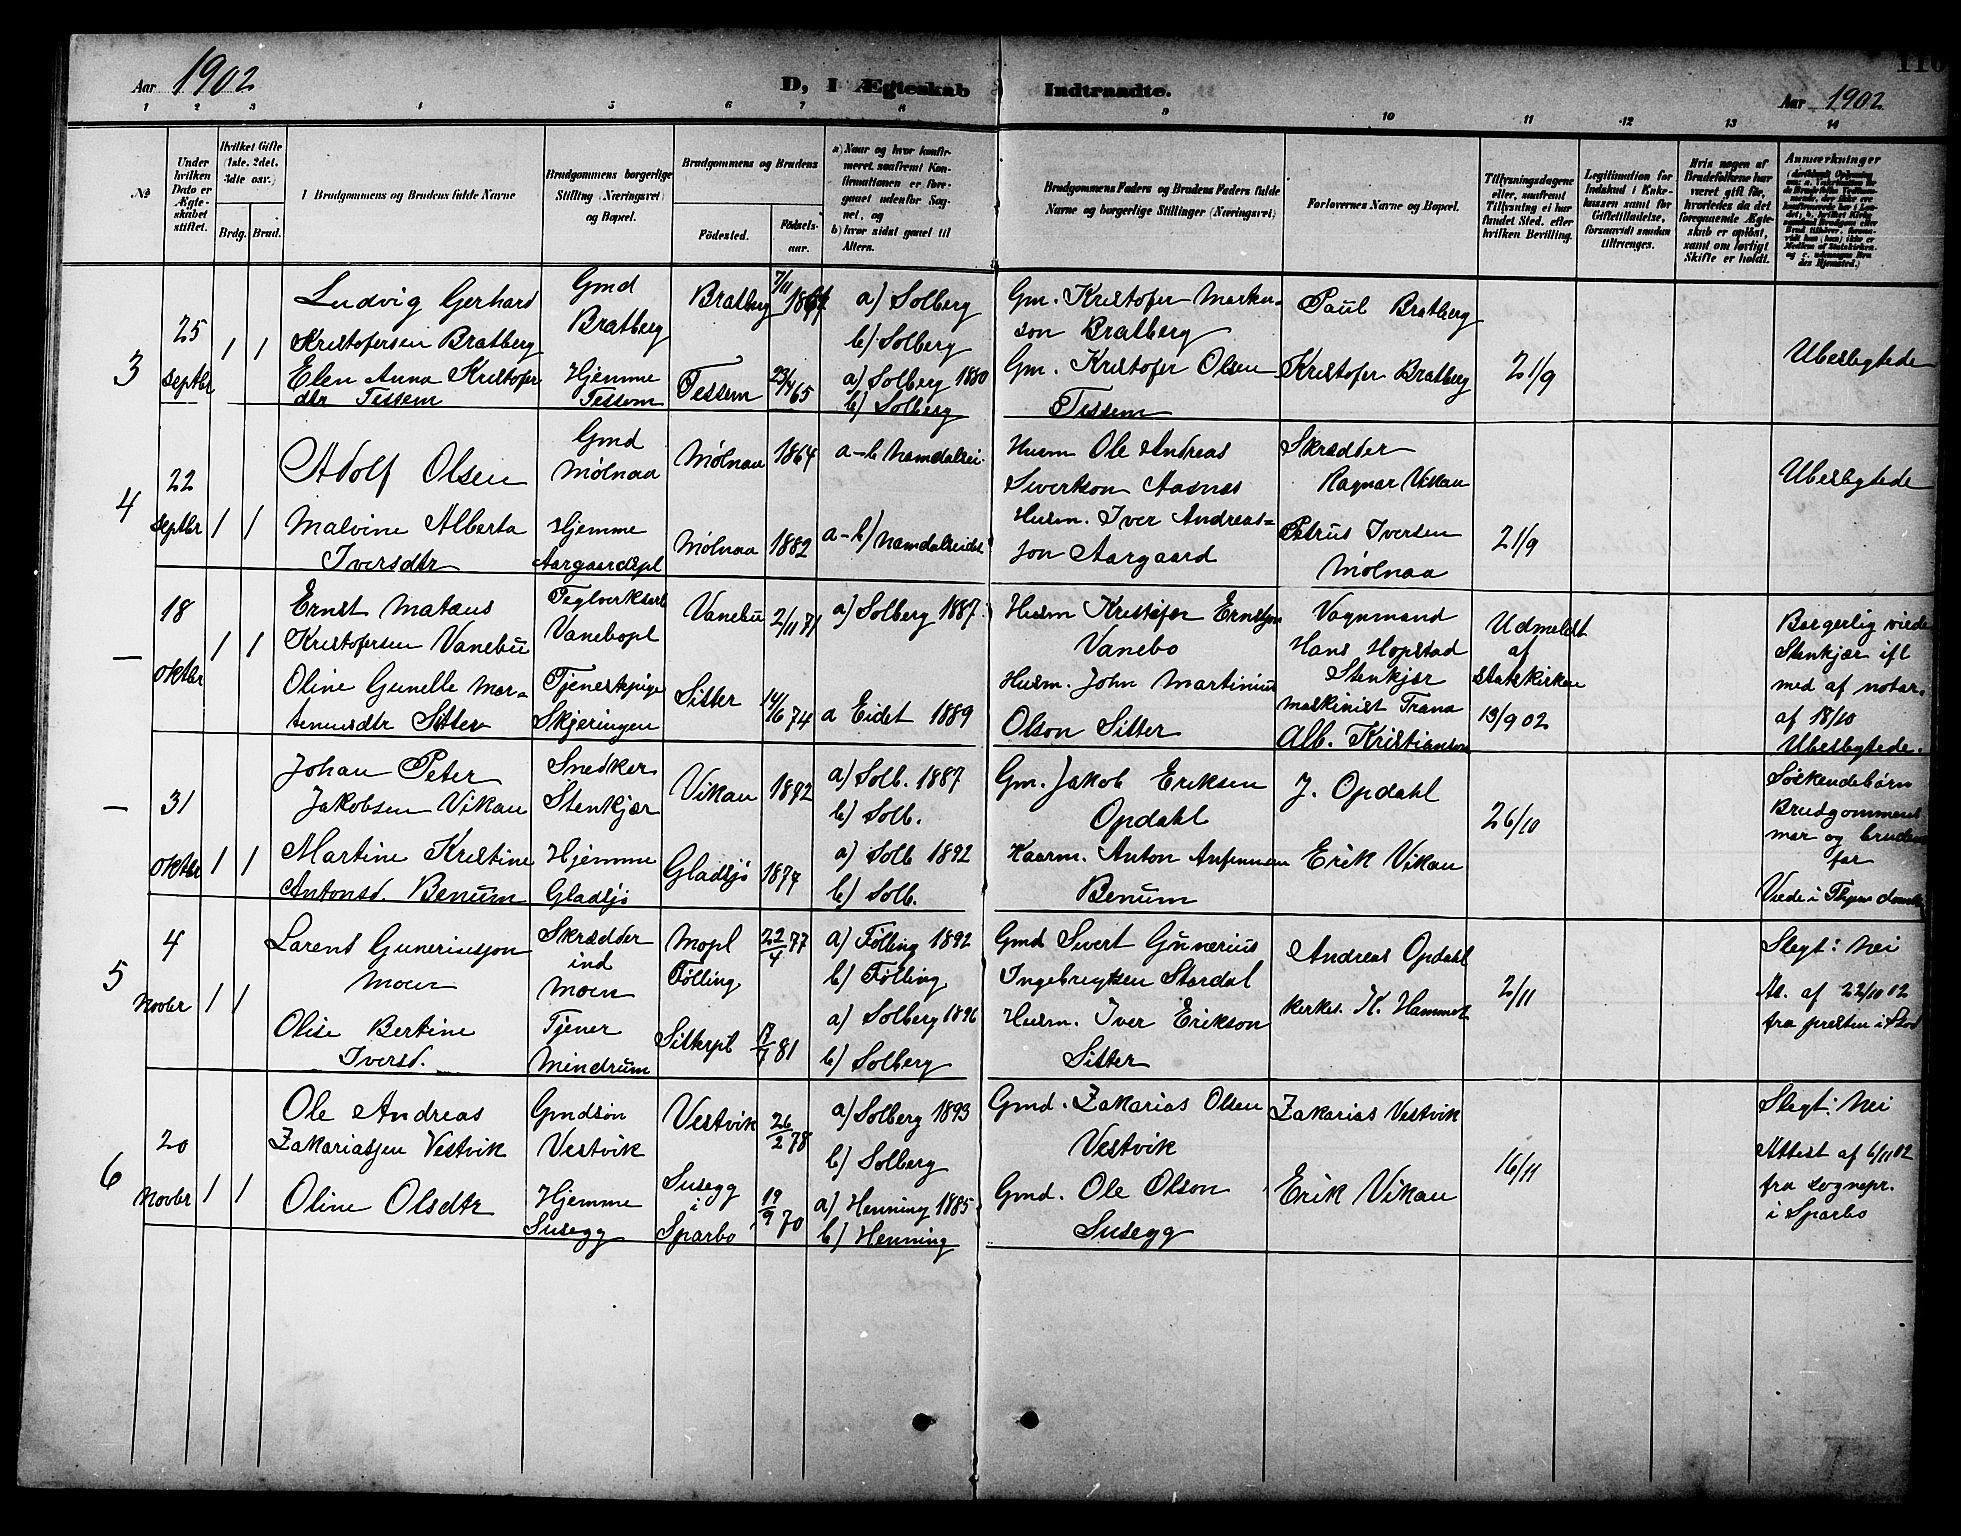 116
Aar 1902
D, I Ægteskab Indtraadte.
Aar 1902
1 2 3 4 5 6 7 8 9 10 11 12 13 14
No
Under hvilken Dato er Ægteskabet stiftet.
Hvilket Gifte (1ste, 2det, 3die osv.)
Brdg. Brud.
I Brudgommens og Brudens fulde Navne
Brudgommens borgerlige Stilling (Næringsvei) og Bopæl.
Brudgommens og Brudens
Fødested.
Fødselsaar.
a) Naar og hvor konfirmeret, saafremt Konfirmationen er foregaaet udenfor Sognet, og
b) hvor sidst gaaet til Alters.
Brudgommens Faders og Brudens Faders fulde Navne og borgerlige Stillinger (Næringsvei)
Forlovernes Navne og Bopæl.
Tillysningsdagene eller, saafremt Tillysning ei har fundet Sted, efter hvilken Bevilling.
Legitimation for Indskud i Enkekassen samt for Giftetilladelse, forsaavidt saadan tiltrænges.
Hvis nogen af Brudefolkene har været gift før, hvorledes da det foregaaende Ægteskab er opløst, samt om lovligt Skifte er holdt.
Anmærkninger
3
25 Septbr
1 1
Ludvig Gerhard
Kristofersen Bratberg
Gmd
Bratberg
Bratberg
7/11 1864
a) Solberg
b) Solberg
Gm. Kristofer Markusson Bratberg
Paul Bratberg
Elen Anna Kristoferdtr Tessem
Hjemme
Tessem
Tessem
23/4 65
a) Solberg 1880
b) Solberg
Gm. Kristofer Olsen
Tessem
Kristofer Bratberg
21/9
Ubeslegtede
4
22 Septbr
1 1
Adolf Olsen
Gmd
Mølnaa
Mølnaa
1864
a-b Namdalsei.
Husm Ole Andreas
Sivertson Aasnes
Skrædder
Ragnar Vikau
Ubeslegtede
Malvine Alberta
Iversdtr
Hjemme
Aargaardspl
Mølnaa
1882
a-b) Namdalseidet
Husm. Iver Andreasson Aargaard
Petrus Iversen
Mølnaa
21/9
—
18 oktbr
1 1
Ernst Mataus
Kristofersen Vanebu
Teglverksarb
Vanebopl
Vanebu
2/11 71
a) Solberg 1887
Husm Kristofer Ernstsen
Vanebo
Vognmand
Hans Hopstad
Stenkjær
Udmeldt
af
Statskirken
13/9 02
Borgerlig viede
Stenkjær ifl
med af notar.
af 18/10
Ubeslegtede.
Oline Gunelle Martinusdtr Sitter
Tjenerkpige
Skjeringen
Sitter
14/6 74
a Eidet 1889
Husm. John Martinius
Olson Sitter
maskinist Trana
Alb. Kristianson
—
31 oktbr
1 1
Johan Peter
Jakobsen Vikau
Snedker
Stenkjær
Vikau
1872
a) Solb. 1887
b) Solb.
Gm. Jakob Eriksen
Opdahl
J. Opdahl
26/10
Søskendebørn
Brudgommens
mor og brudens
far
Viede i Thjem domk
Martine Kristine
Antonsd. Benum
Hjemme
Gladsjø
Gladsjø
1877
a) Solb 1892
b) Solb.
Kaarm. Anton
Benum
Erik Vikau
5
4 Novbr
1 1
Larent Guneriusson
Moen
Skrædder
ind
Moen
Mopl
Følling
22/4 77
a) Følling 1892
b) Følling
Gmd Sivert Gunerius
Ingebrigtsen Stordal
Andreas Opdahl
2/11
Slegt: Nei
At. af 22/10 02
fra presten i Stod
Olise Bertine
Iversd.
Tjener
Mindrum
Sitterpl
17/7 81
a) Solberg 1896
b) Solberg
Husm. Iver Erikson
Sitter
Kirkes. K. Hammer
6
20 Novbr
1 1
Ole Andreas
Zakariassen Vestvik
Gmdsøn
Vestvik
Vestvik
26/2 78
a) Solberg 1893
b) Solberg
Gmd. Zakarias Olsen
Vestvik
Zakarias Vestvik
16/11
Slegt: Nei
Attest af 6/11 02
fra sognepr.
i Sparbo
Oline Olsdtr
Hjemme
Susegg
Susegg
i
Sparbo
19/9 70
a) Henning 1885
b) Henning
Gmd. Ole Olson
Susegg
Erik Vikau